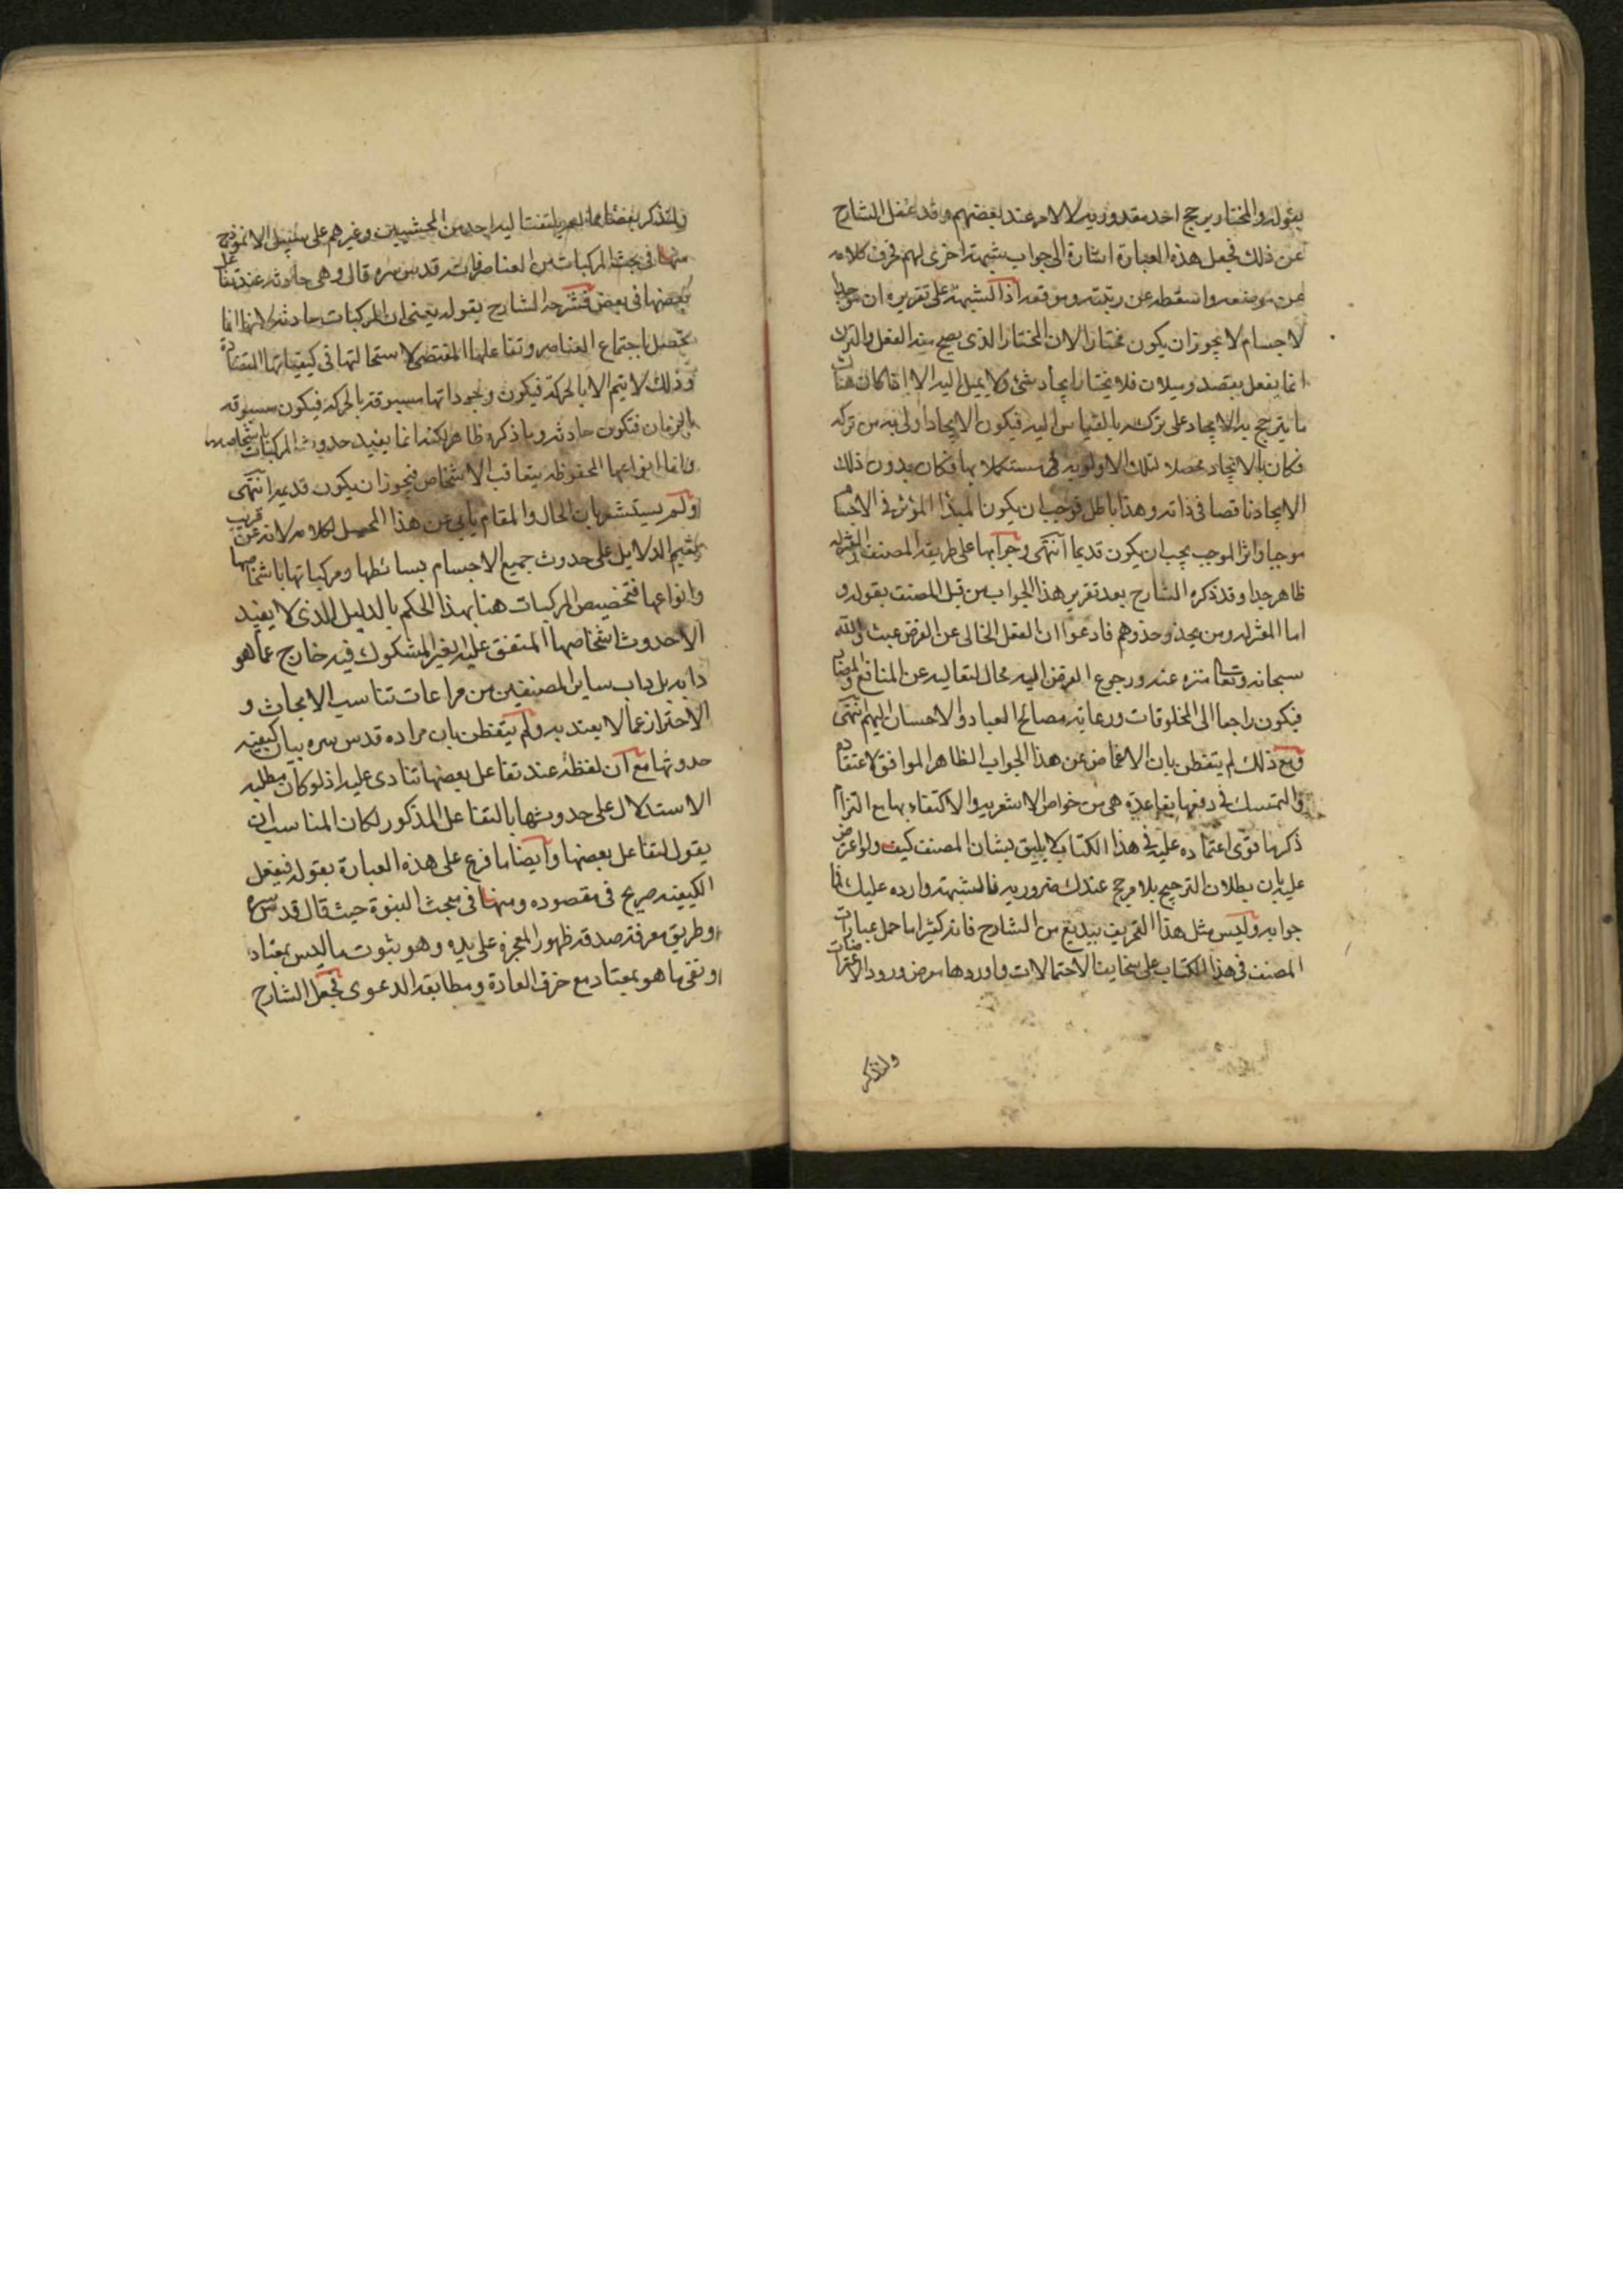 بقوله والمختار يرجح احد مقدوريه لا لامر عند بعضهم وقد غفل الشارح
عن ذلك فجعل هذه العبارة اشارة الى جواب شبهة اخرى لهم فحرف كلامه
عن موضعه واسقطه عن رتبته وموقعه اذ الشبهة على تقريره ان موجد
الاجسام لا يجوز ان يكون مختارا لان المختار الذي يصح منه الفعل والترك
انما يفعل بقصد وميلان فلا يختار ايجاد شئ ولا يميل اليه الا اذا كان هناك
ما يترجح به الايجاد على تركه بالقياس اليه فيكون الايجاد اولى به من تركه
فكان بالايجاد محصلا لتلك الاولوية مستكملا بها فكان بدون ذلك
الايجاد ناقصا في ذاته وهذا باطل فوجب ان يكون المبدأ المؤثر في الاجسام
موجبا واثر الموجب يجب ان يكون قديما انتهى وجوابها على طريقة المصنف والمعتزلة
ظاهر جدا وقد ذكره الشارح بعد تقرير هذا الجواب من قبل المصنف بقوله و
اما المعتزله ومن يحذو حذوهم فادعوا ان الفعل الخالي عن الغرض عبث والله
سبحانه وتعالى منزه عنه ورجوع الغرض اليه محال لتعاليه عن المنافع والمضار
فيكون راجعا الى المخلوقات ورعاية مصالح العباد والاحسان اليهم انتهى
ومع ذلك لم يتفطن بان الاغماض عن هذا الجواب الظاهر الموافق لاعتقاده
والتمسك في دفعها بقاعدة هي من خواص الاشعرية والاكتفاء بها مع التزام
ذكر ما قوى اعتماده عليه في هذا الكتاب لا يليق بشان المصنف كيف ولو اعترض
عليه بان بطلان الترجيح بلا مرجح عندك ضروريه فالشبهة وارده عليك فما
جوابه وليس مثل هذا التحريف ببديع من الشارح فانه كثيرا ما حمل عبارات
المصنف في هذا الكتاب على سخايف الاحتمالات واوردها معرض ورود الاعتراضات
ولنذكر
ولنذكر بعضا مما لم يلتفت اليه احد من المحشيين وغيرهم على سبيل الانموذج
منها في بحث المركبات من العناصر فانه قدس سره قال وهي حادثه عند تفاعل
بعضها في بعض فشرحه الشارح بقوله يعني ان المركبات حادثة لانها انما
تحصل باجتماع العناصر وتفاعلها المقتضي لاستحالتها في كيفياتها المتضادة
وذلك لا يتم الا بالحركة فيكون وجوداتها مسبوقة بالحركة فيكون مسبوقه
بالزمان فتكون حادثه وما ذكره ظاهر لكنه انما يفيد حدوث المركبات باشخاصها
واما انواعها المحفوظه بتعاقب الاشخاص فيجوز ان يكون قديمه انتهى
ولم يستشعر بان الحال والمقام يأبى عن هذا المحمل لكلامه لانه عن قريب
يقيم الدلايل على حدوث جميع الاجسام بسائطها ومركباتها باشخاصها
وانواعها فتخصيص المركبات هنا بهذا الحكم بالدليل الذي لا يفيد
الا حدوث اشخاصها المتفق عليه الغير المشكوك فيه خارج عما هو
دابه بل داب ساير المصنفين من مراعات تناسب الابحاث و
الاحتراز عما لا يعتد به ولم يتفطن بان مراده قدس سره بيان كيفية
حدوثها مع ان لفظة عند تفاعل بعضها تنادى عليه اذ لو كان مطلبه
الاستدلال على حدوثها بالتفاعل المذكور لكان المناسب ان
يقول لتفاعل بعضها وايضا ما فرع على هذه العبارة بقوله فيفعل
الكيفية صريح في مقصوده ومنها في مبحث النبوة حيث قال قدس سره
وطريق معرفة صدقه ظهور المعجزة على يده وهو ثبوت ما ليس بمعتاد
او نفي ما هو بمعتاد مع خرق العادة ومطابقة الدعوى فجعل الشارح